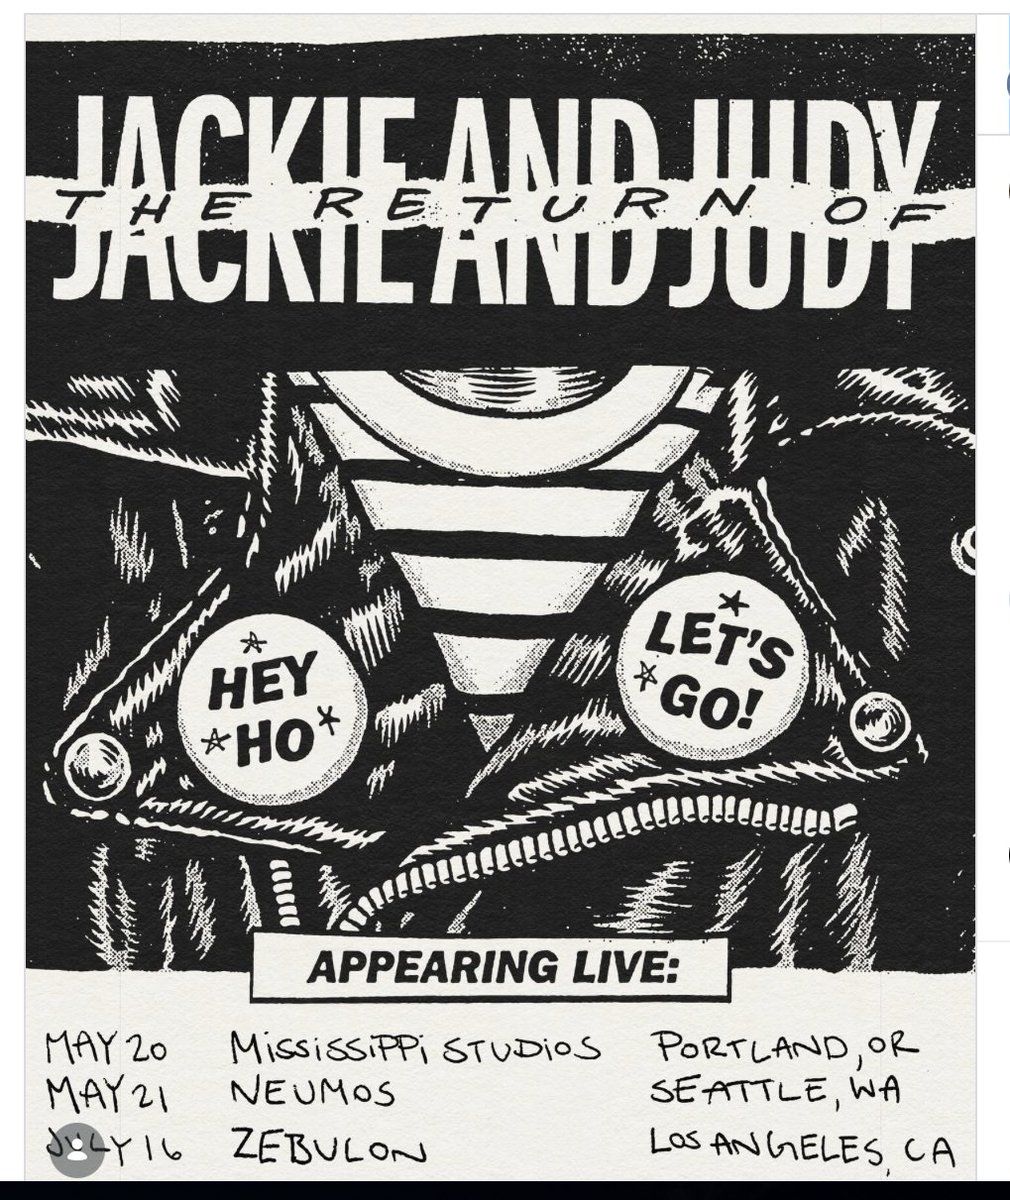 JACKIE AND JUDY
THE RETURN OF
HEY
HO
LET'S
GO!
APPEARING LIVE:
MAY 20 MISSISSIPPI STUDIOS PORTLAND, OR
MAY 21 NEUMOS SEATTLE, WA
JULY 16 ZEBULON LOS ANGELES, CA